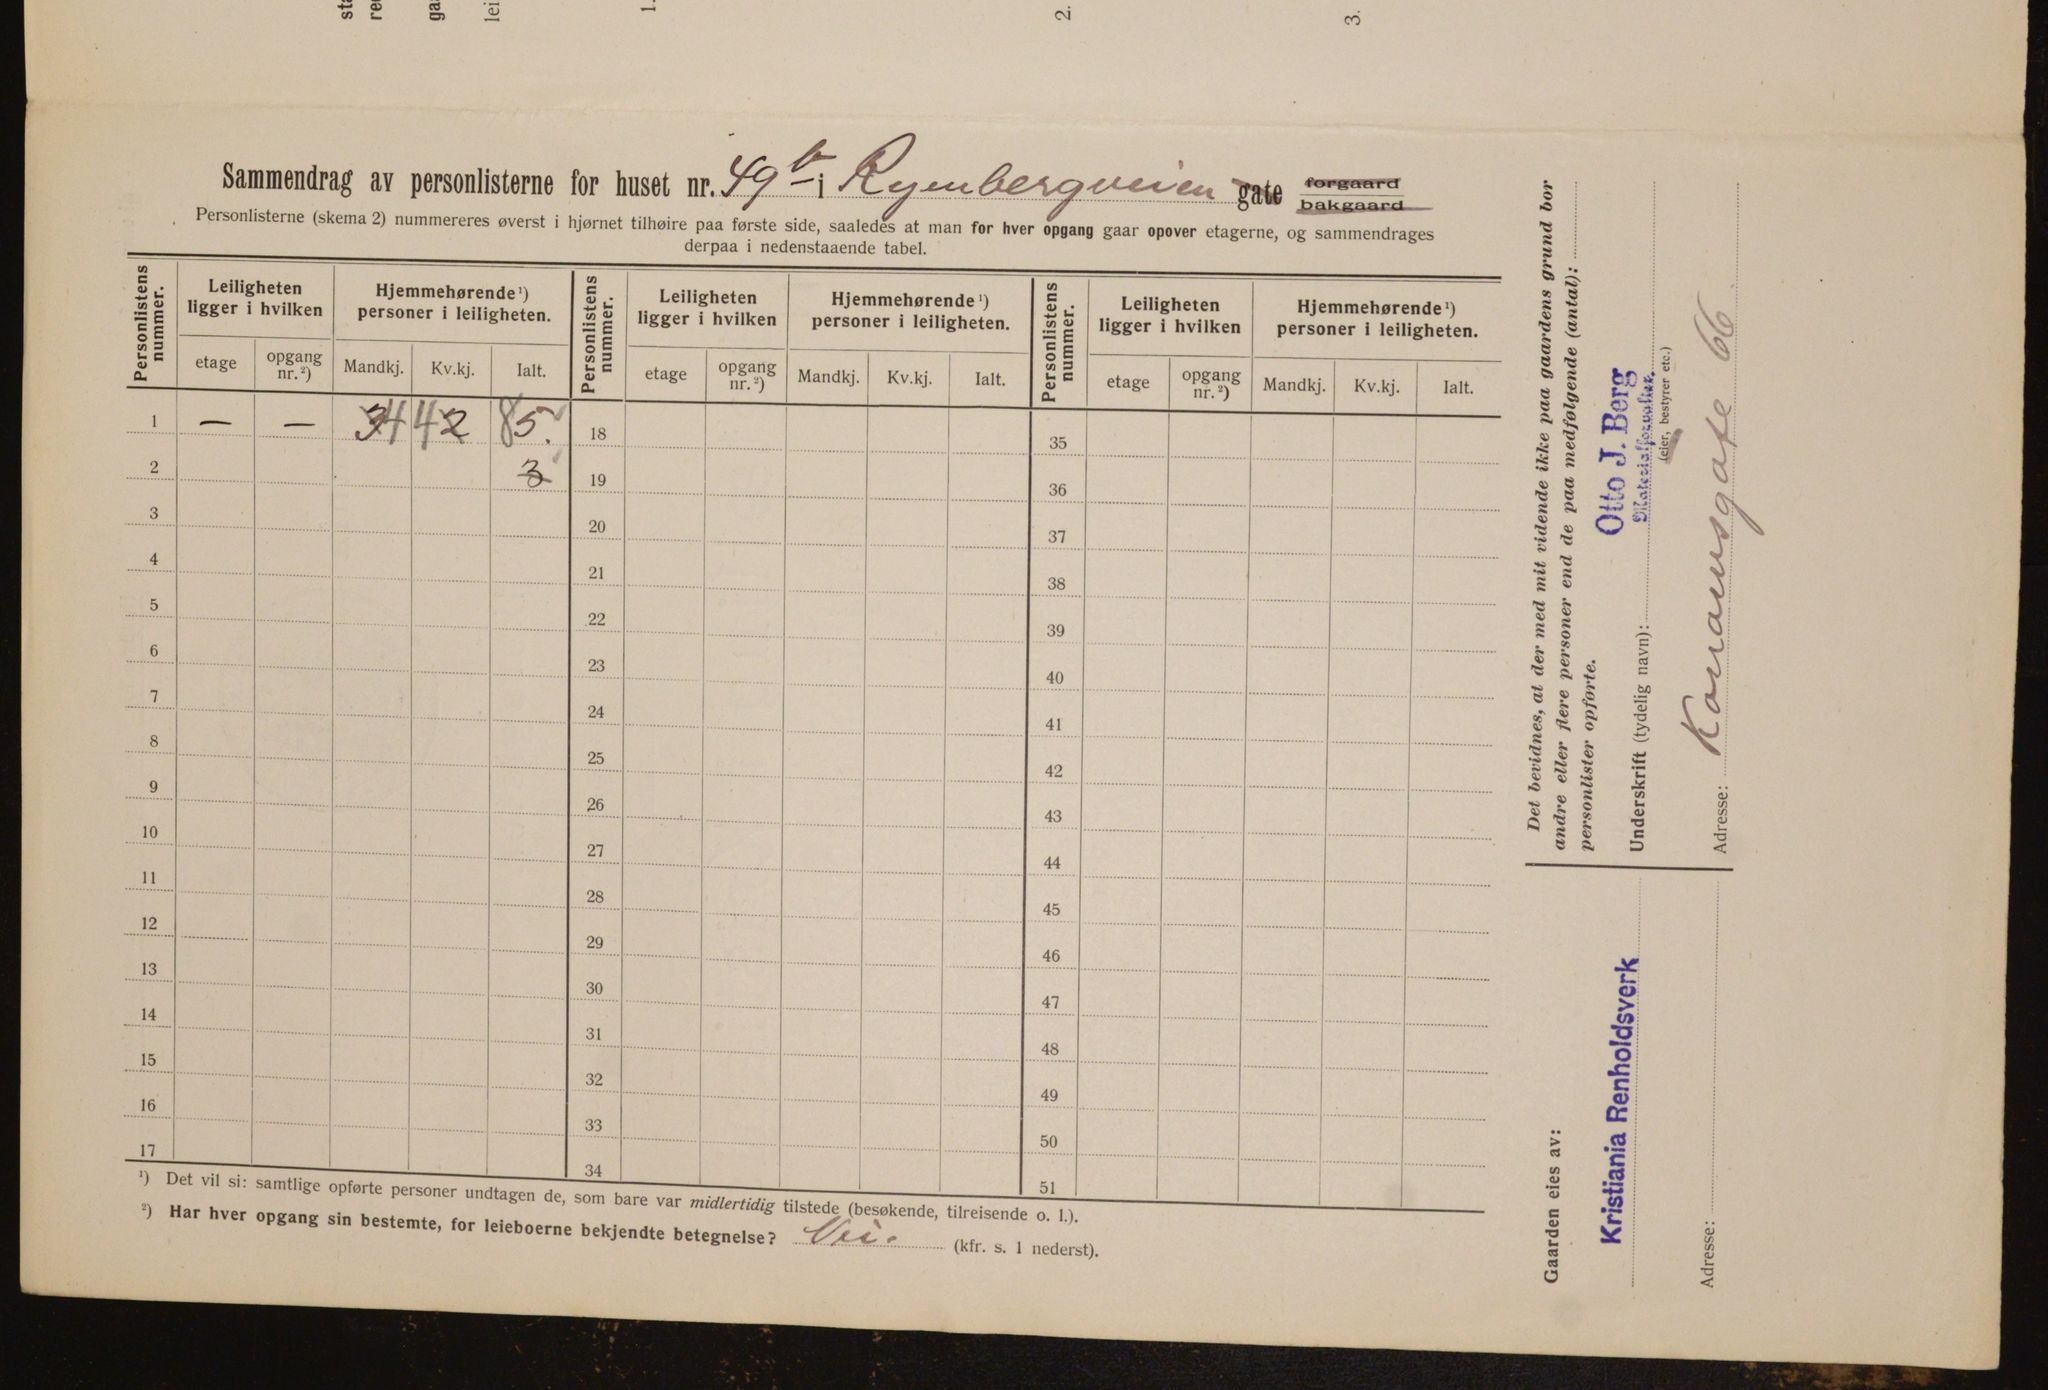 1.
2.
3.
Sammendrag av personlisterne for huset nr. 49 b i Ryenbergveien gate forgaard
bakgaard
Personlisterne (skema 2) nummereres øverst i hjørnet tilhøire paa første side, saaledes at man for hver opgang gaar opover etagerne, og sammendrages
derpaa i nedenstaaende tabel.
Personlistens nummer. Leiligheten ligger i hvilken Hjemmehørende ¹) personer i leiligheten. Personlistens nummer. Leiligheten ligger i hvilken Hjemmehørende ¹) personer i leiligheten. Personlistens nummer. Leiligheten ligger i hvilken Hjemmehørende ¹) personer i leiligheten.
etage opgang nr. ²) Mandkj. Kv.kj. Ialt. etage opgang nr. ²) Mandkj. Kv.kj. Ialt. etage opgang nr. ²) Mandkj. Kv.kj. Ialt.
1 — — 3 4 4 2 8 5. 18 35
2 3 19 36
3 20 37
4 21 38
5 22 39
6 23 40
7 24 41
8 25 42
9 26 43
10 27 44
11 28 45
12 29 46
13 30 47
14 31 48
15 32 49
16 33 50
17 34 51
¹) Det vil si: samtlige opførte personer undtagen de, som bare var midlertidig tilstede (besøkende, tilreisende o. l.).
²) Har hver opgang sin bestemte, for leieboerne bekjendte betegnelse? Nei. (kfr. s. 1 nederst).
Det bevidnes, at der med mit vidende ikke paa gaardens grund bor
andre eller flere personer end de paa medfølgende (antal):
personlister opførte.
Otto J. Berg
Materialforvalter.
Underskrift (tydelig navn):
(eier, bestyrer etc.)
Adresse: Konowsgate 66.
Gaarden eies av:
Kristiania Renholdsverk
Adresse: